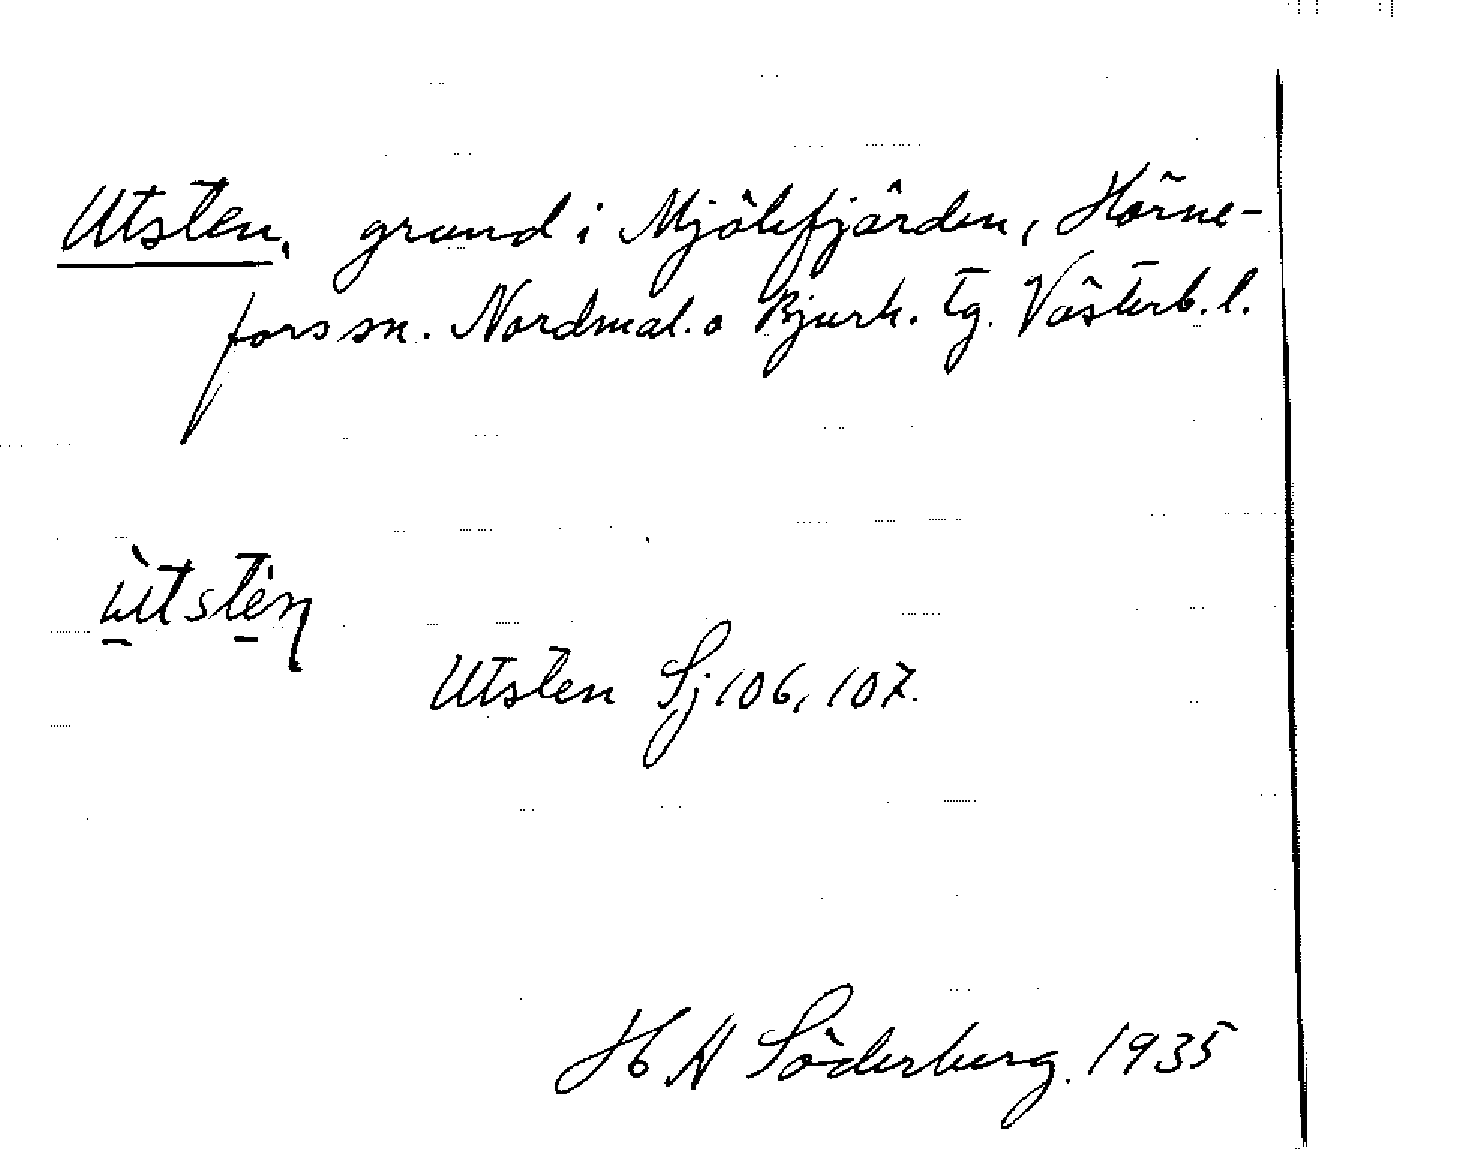 Utsten, grund i Mjölefjärden, Hörne-
fors sn. Nordmal. o Bjurh. tg. Västerb. l.
ùtstén
Utsten Sj 106, 107.
H A Söderberg. 1935